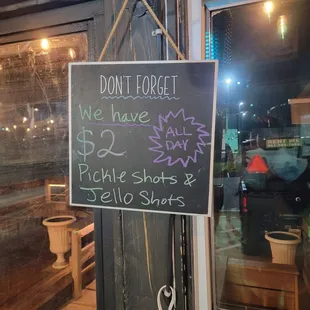 DON'T FORGET
We have
$2
ALL
DAY
Pickle shots &
Jello Shots